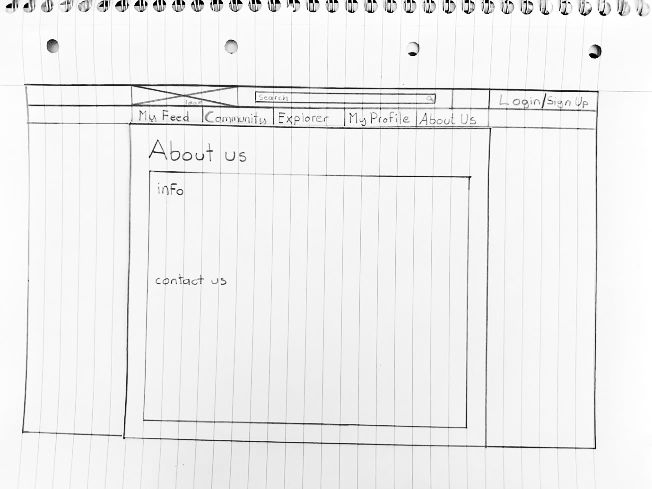 Search
Login/Sign Up
My Feed Community Explorer My Profile About Us
About us
info
contact us